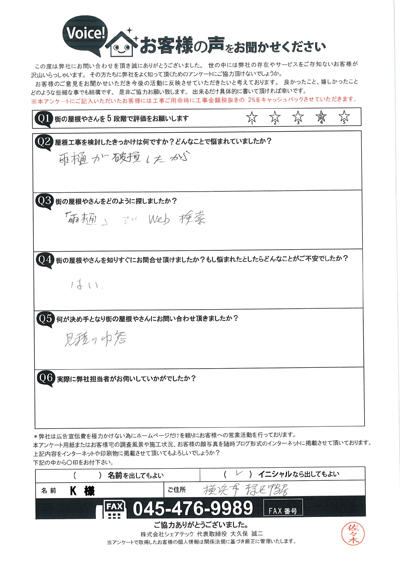 Voice!
お客様の声をお聞かせください
この度は弊社にお問い合わせを頂き誠にありがとうございました。世の中には弊社の存在やサービスをご存知ないお客様が
沢山いらっしゃいます。その方たちに弊社をよく知って頂くためのアンケートにご協力頂けないでしょうか。
お客様のご意見をお聞かせいただき今後の活動に反映させていただきたいと考えております。良かったこと、嬉しかったこと
どのような些細な事でも結構です。是非ご協力お願い致します。出来るだけ具体的に書いて頂ければ幸いです。
※本アンケートにご記入いただいたお客様には工事ご用命時に工事金額税抜きの2%をキャッシュバックさせていただきます。
Q1 街の屋根やさんを5段階で評価をお願いします
Q2 屋根工事を検討したきっかけは何ですか?どんなことで悩まれていましたか?
雨樋が破損したから
Q3 街の屋根やさんをどのように探しましたか?
「雨樋」でWeb検索
Q4 街の屋根やさんを知りすぐにお問合せ頂けましたか?もし悩まれたとしたらどんなことがご不安でしたか?
はい
Q5 何が決め手となり街の屋根やさんにお問い合わせ頂きましたか?
見積の内容
Q6 実際に弊社担当者がお伺いしていかがでしたか?
*弊社は広告宣伝費を極力かけない為にホームページだけを頼りにお客様への営業活動を行っております。
本アンケート用紙またはお客様宅の調査風景や施工状況、お客様の顔写真を随時ブログ形式のインターネットに掲載させて頂いております。
上記内容をインターネットや印刷物に掲載させて頂いてもよろしいでしょうか?
下記の中から〇印をお付下さい。
( )名前を出してもよい ( ✓ )イニシャルなら出してもよい
名前 K 様 ご住所 横浜市
FAX 045-476-9989 FAX番号
ご協力ありがとうございました。
株式会社シェアテック 代表取締役 大久保 誠二
※アンケートで取得したお客様の個人情報は関係法規に基づき厳正に管理いたします。
佐々木